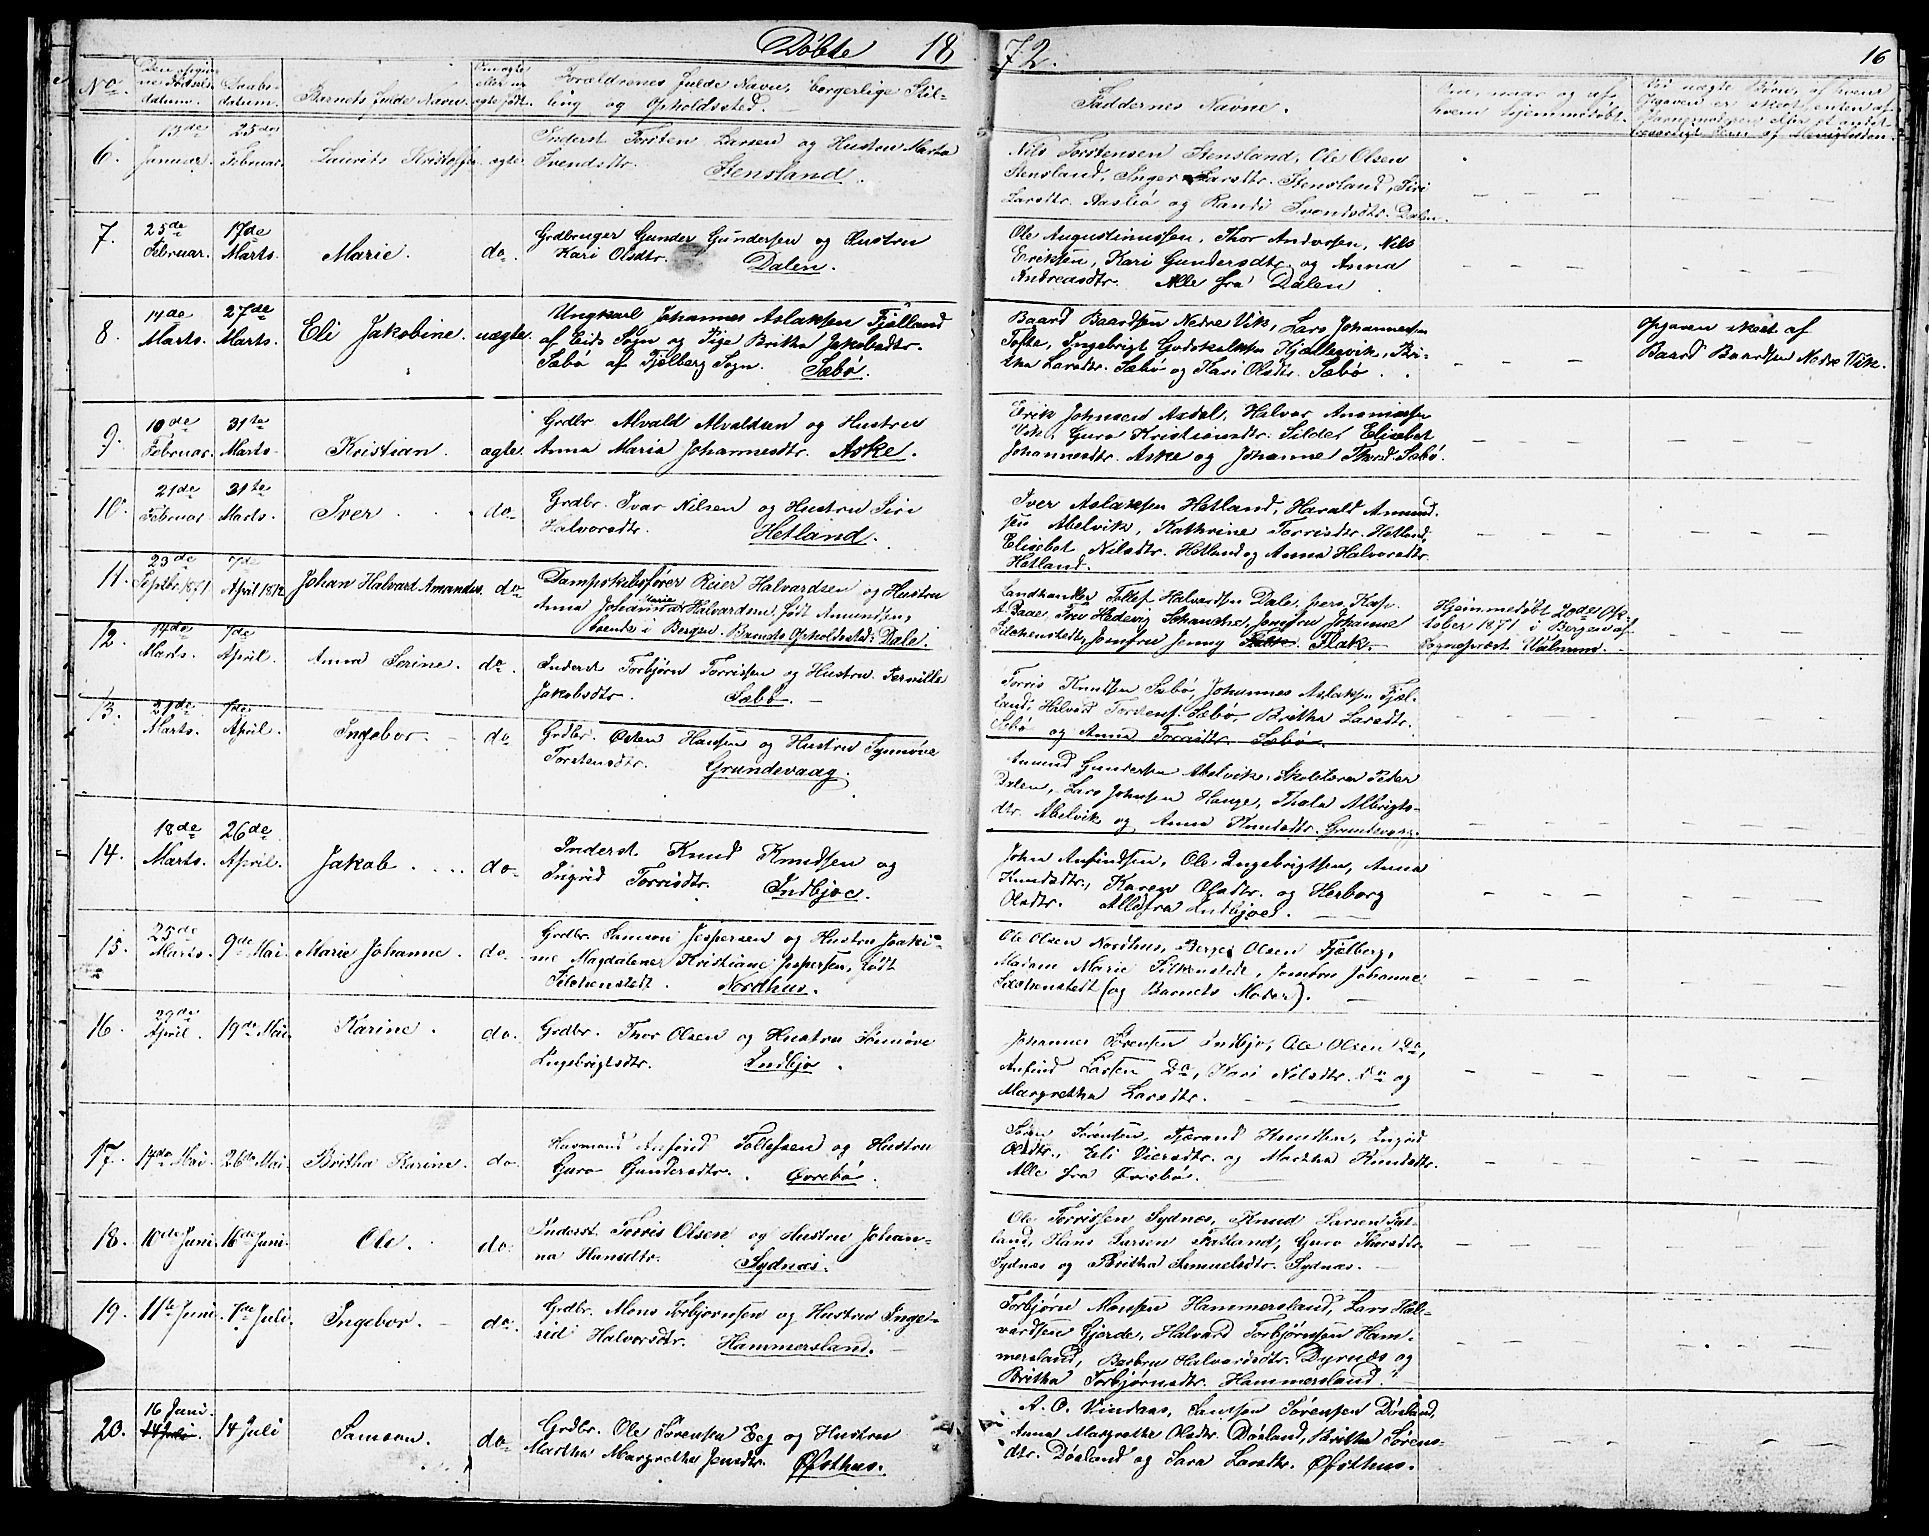 Døbte 1872.
16
No.
Barnets fulde Navn.
Forældrenes fulde Navn, borgerlige Stil-
ling og Opholdssted.
Faddernes Navne.
6. 13de Januar. 25de Februar. Laurits ægte. Inderst Torsten Larsen og Hustru Marta
Svendsdtr. Stensland.
Nils Torstensen Stensland, Ole Olsen
Stensland, Inger Larsdtr. Stensland, Siri
Larsdtr. og Randi Svendsdtr. Dalen.
7. 25de Februar. 17de Marts. Marie. do. Grdbruger Gunder Gundersen og Hustru
Kari Olsdtr. Dalen.
Ole Augustinussen, Thor Andersen, Nils
Eriksen, Kari Gundersdtr. og Anna
Andreasdtr. Alle fra Dalen.
8. 14de Marts. 27de Marts. Eli Jakobine. uægte. Ungkarl Johannes Aslaksen Fjelland
af Eids Sogn og Pige Britha Jakobsdtr.
Sæbø af Fjelberg Sogn. Sæbø.
Baard Baardsen Nedre Vik, Lars Johannessen
Tofte, Ingebrigt Godskalksen Kjællesvik, Bri-
tha Larsdtr. Sæbø og Kari Olsdtr. Sæbø.
Opgaven skeet af
Baard Baardsen Nedre Vik.
9. 10de Februar. 31te Marts. Kristian. ægte. Grdbr. Alvald Alvaldsen og Hustru
Anna Maria Johannesdtr. Aske.
Erik Johnsen Axdal, Halvor
Vik, Guro Kristiansdtr. Silde, Elisebet
Johannesdtr. Aske og Johanne Thorsd. Sæbø.
10. 21de Februar. 31te Marts. Iver. do. Grdbr. Ivar Nilsen og Hustru Siri
Halvorsdtr. Hetland.
Iver Aslaksen Hetland, Harald Amund-
sen Abelvik, Kathrine Torrisdtr. Hetland,
Elisebet Nilsdtr. Hetland og Anna Halvorsdtr.
Hetland.
11. 23de Septbr. 1871. 7de April 1872. Johan Halvard Amandus. do. Dampskibsfører Reier Halvardsen og Hustru
Anna Johanna Marie Halvardsen, født Amundsen,
boende i Bergen. Barnets Opholdssted: Dale.
Landhandler Tollef Halvardsen Dale, pers. Kap.
A. Daae, Fru Hedevig Schanche, Jomfru Johanne
Silchenstedt, Jomfru Jenny Flak.
Hjemmedøbt 20de Ok-
tober 1871 i Bergen af
Sogneprest
12. 14de Marts. 7de April. Anna Serine. do. Inderst Torbjørn Torrissen og Hustru Pernille
Jakobsdtr. Sæbø.
Torris Knudsen Sæbø, Johannes Aslaksen Fjel-
land, Halvard Sæbø, Britha Larsdtr.
Sæbø og Anna Torrisdtr. Sæbø.
13. 21de Marts. 7de April. Ingebor. do. Grdbr. Østen Hansen og Hustru Synnøve
Torstensdtr. Grundevaag.
Amund Gundersen Abelvik, Skolelærer Peder
Dalen, Lars Johnsen Hauge, Thala Albrigts-
dtr. Abelvik og Anna Knudsdtr. Grundevaag.
14. 18de Marts. 26de April. Jakob. do. Inderst Knud Knudsen og
Ingrid Torrisdtr. Indbjoe.
John Anfindsen, Ole Ingebrigtsen, Anna
Knudsdtr., Karen Olsdtr. og Herborg
Olsdtr. Alle fra Indbjoe.
15. 25de Marts. 9de Mai. Marie Johanne. do. Grdbr. Samson Jespersen og Hustru Joaki-
me Magdalene Kristiane Jespersen, født
Silchenstedt. Nordhus.
Ole Olsen Nordhus, Berge Olsen Fjelberg,
Madam Marie Silkenstedt, Jomfru Johanne
Silchenstedt (og Barnets Moder).
16. 29de April. 19de Mai. Karine. do. Grdbr. Thor Olsen og Hustru Sønnøve
Ingebrigtsdtr. Indbjo.
Johannes Sørensen Indbjo, Ole Olsen Do,
Anfind Larsen Do, Kari Nilsdtr. Do og
Margretha Larsdtr.
17. 14de Mai. 26de Mai. Britha Karine. do. Huusmand Anfind Tollefsen og Hustru
Guro Gundersdtr. Øvrebø.
Søren Sørensen, Tjerand Knudsen, Ingrid
Olsdtr., Eli Viersdtr. og Martha Knudsdtr.
Alle fra Øvrebø.
18. 10de Juni. 16de Juni. Ole. do. Inderst Torris Olsen og Hustru Johan-
na Hansdtr. Sydnæs.
Ole Torrissen Sydnæs, Knud Larsen Fat-
land, Hans Larsen Fatland, Guro Thorsdtr.
Sydnæs og Britha Samuelsdtr. Sydnæs.
19. 11te Juni. 7de Juli. Ingebor. do. Grdbr. Mons Torbjørnsen og Hustru Inge-
rid Halvorsdtr. Hammersland.
Torbjørn Monsen Hammersland, Lars Hal-
vardsen Gjerde, Halvard Torbjørnsen Ham-
mersland, Barbru Halvardsdtr. Dyrnæs og
Britha Torbjørnsdtr. Hammersland.
20. 16 Juni. 14 Juli. 14 Juli Samson. do. Grdbr. Ole Sørensen Eeg og Hustru
Martha Margretha Jensdtr. Øfsthus.
A. O. Vindaas, Samson Sørensen Døsland,
Anna Margretha Olsdtr. Døsland, Britha Sørens-
dtr. Døsland og Sara Larsdtr. Øfsthus.